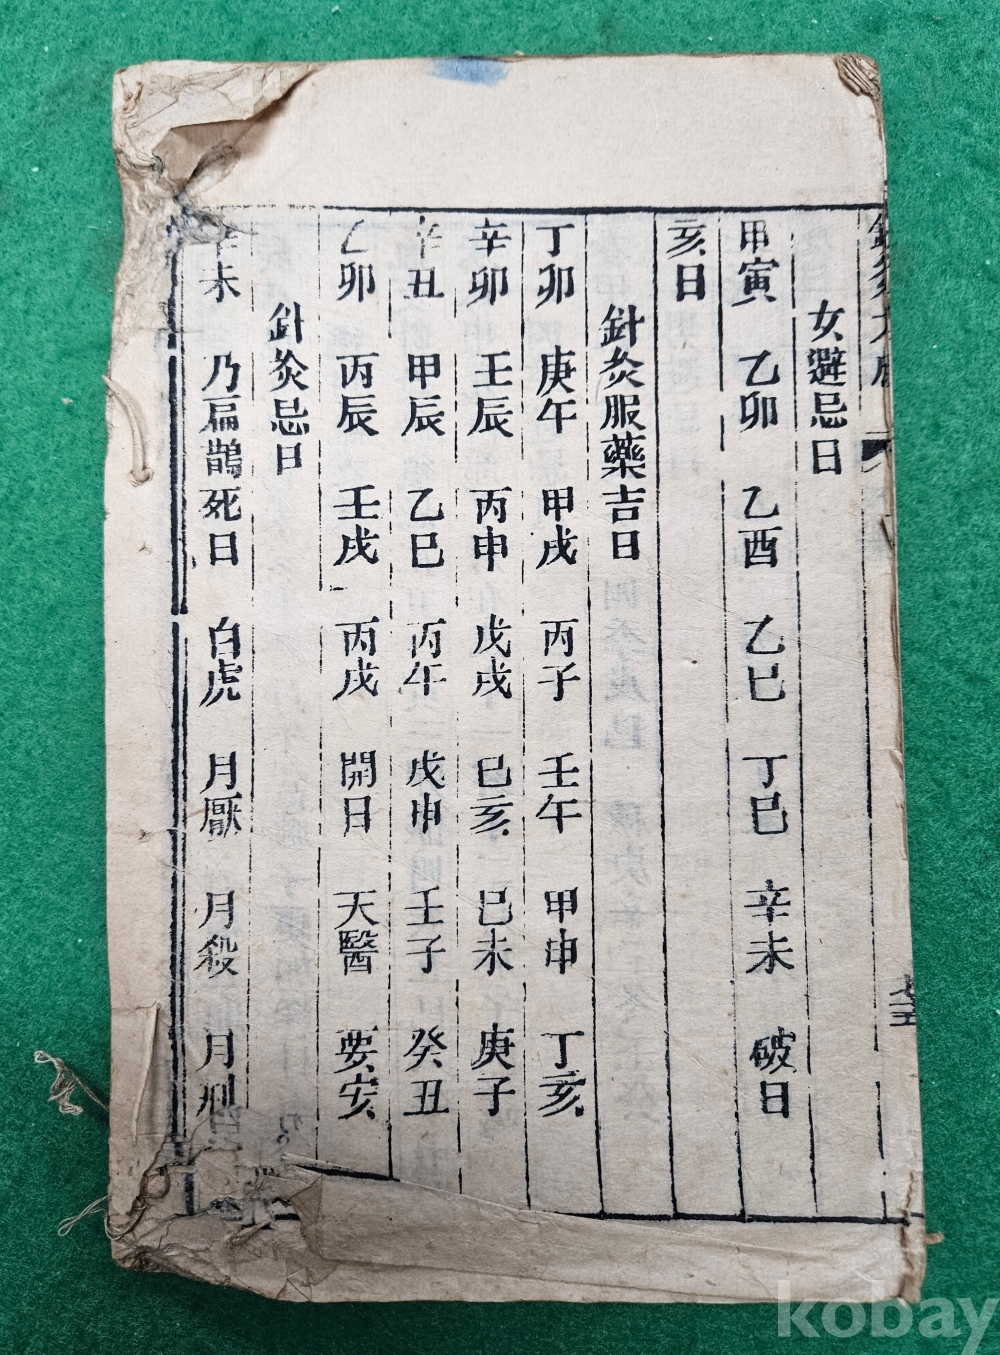 女避忌日
甲寅 乙卯 乙酉 乙巳 丁巳 辛未 破日
亥日
針灸服藥吉日
丁卯 庚午 甲戌 丙子 壬午 甲申 丁亥
辛卯 壬辰 丙申 戊戌 己亥 己未 庚子
辛丑 甲辰 乙巳 丙午 戊申 壬子 癸丑
乙卯 丙辰 壬戌 丙戌 開日 天醫 要安
針灸忌日
辛未 乃扁鵲死日 白虎 月厭 月殺 月刑
kobay